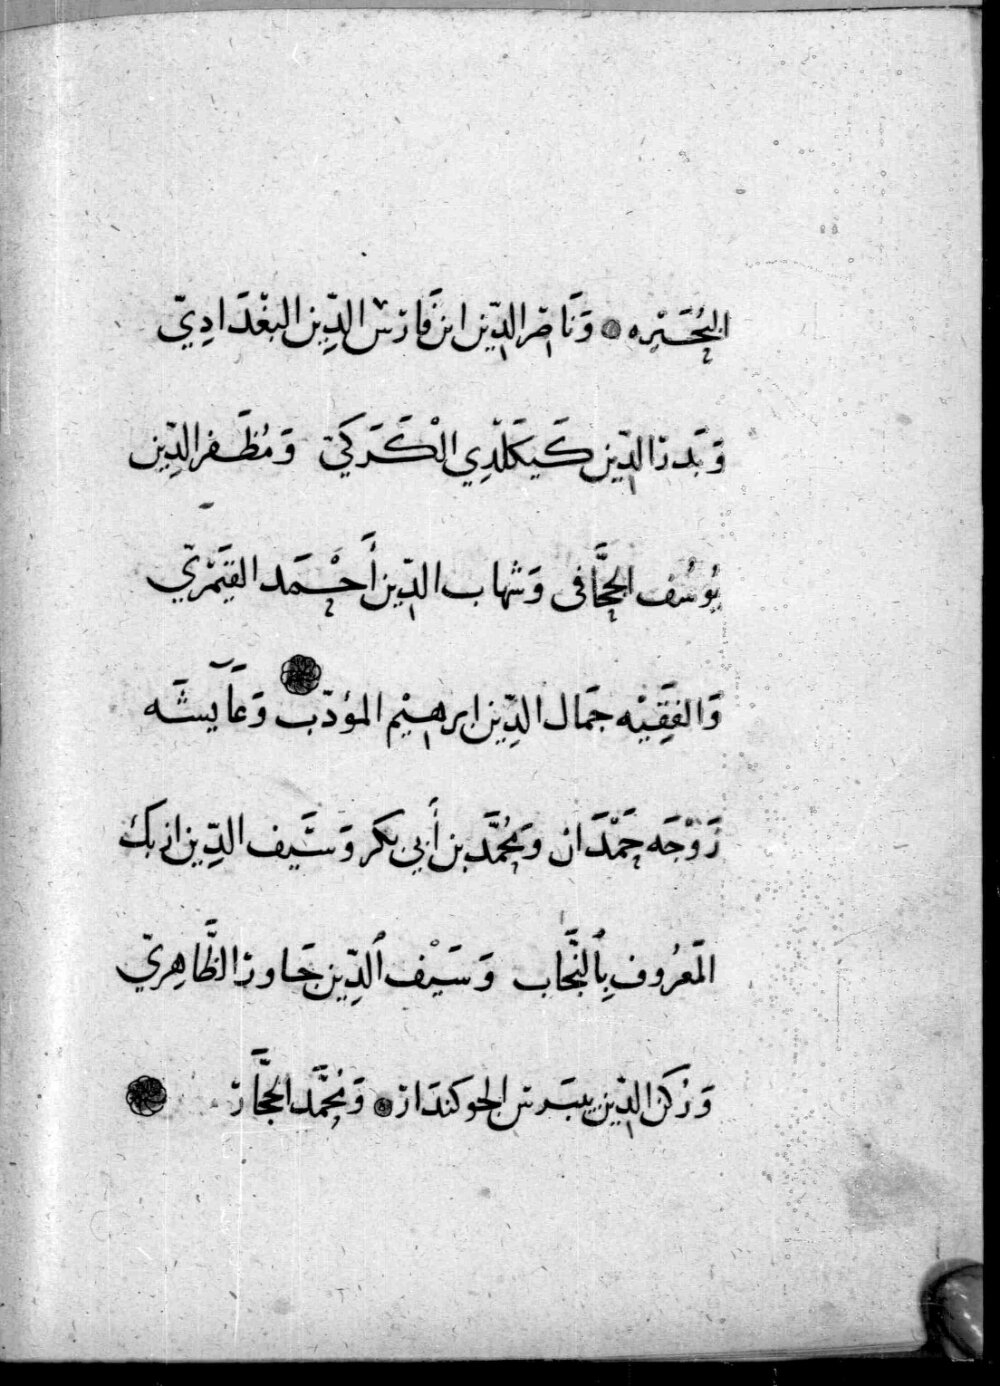 البُحَيْره وَنَاصِر الدِّين ابن فَارِس الدِّين البغْدَادِيّ
وَبَدر الدِّين كَيكَلْدِي الْكَرَكيّ وَمُظَفر الدِّين
يُوسُف الحجَّافى وَشهاب الدِّين أَحْمَد القيَمُريّ
وَالفَقِيْه جمَال الدِّين ابرهيْم المؤدّب وَعَآيشَه
زَوْجَه حَمْدَان وَمُحمَّد بن أَبي بكر وَسَيف الدِّين ازبك
المَعرُوف بِالنجَّاب وَسَيْف الدِّين جَاور الظَّاهِريّ
وَرُكن الدِّين بيبَرس الجوكندَار وَمُحمَّد الحجَّار